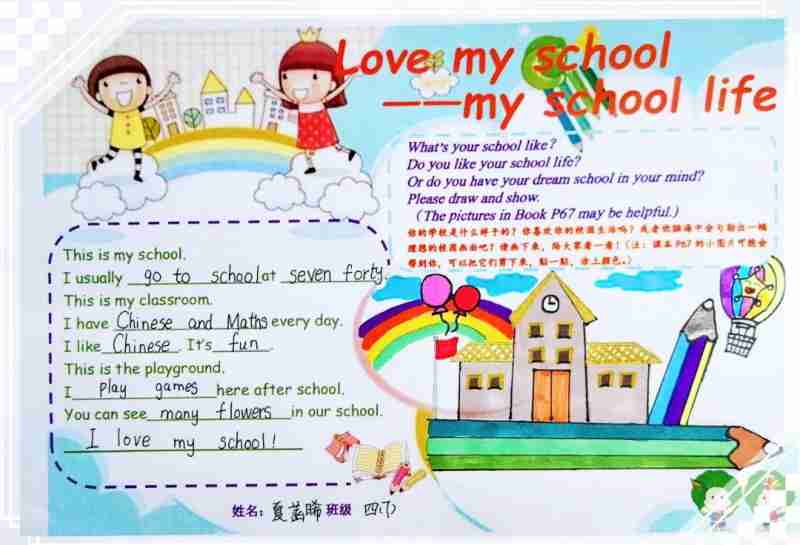 Love my school
——my school life
What's your school like?
Do you like your school life?
Or do you have your dream school in your mind?
Please draw and show.
(The pictures in Book P67 may be helpful.)
你的学校是什么样子的？你喜欢你的校园生活吗？或者你脑海中会勾勒出一幅
理想的校园画面吧？请画下来，给大家看一看！（注：课本 P67 的小图片可能会
帮到你，可以把它们剪下来，贴一贴，涂上颜色。）
This is my school.
I usually go to school at seven forty.
This is my classroom.
I have Chinese and Maths every day.
I like Chinese. It's fun.
This is the playground.
I play games here after school.
You can see many flowers in our school.
I love my school!
姓名：夏 晞 班级 四(7)